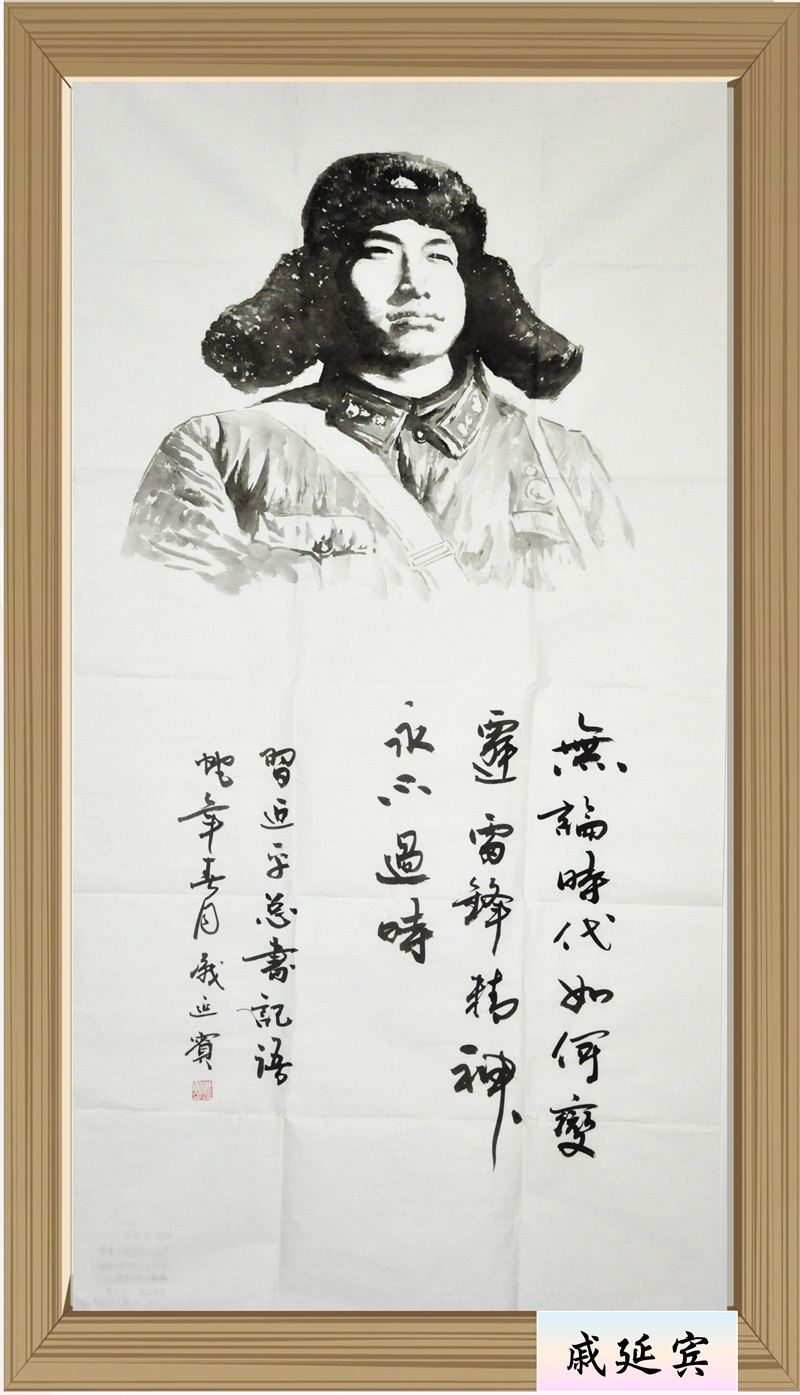 無論時代如何變
遷雷鋒精神
永不過時
習近平总書記語
虵年春月戚延賓
戚延宾